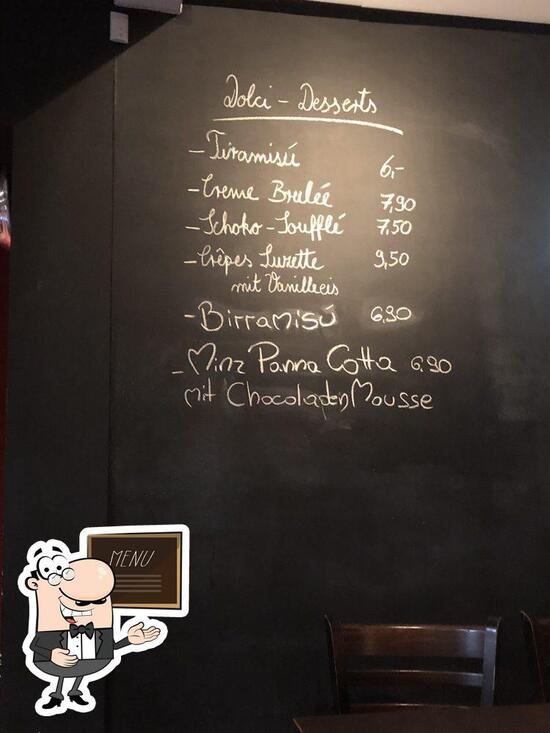 Dolci - Desserts
- Tiramisú 6,-
- Creme Brulée 7,90
- Schoko-Soufflé 7,50
- Crêpes Suzette 9,50
mit Vanilleeis
- Birramisú 6,90
- Minz Panna Cotta 6,90
mit Chocoladen Mousse
MENU